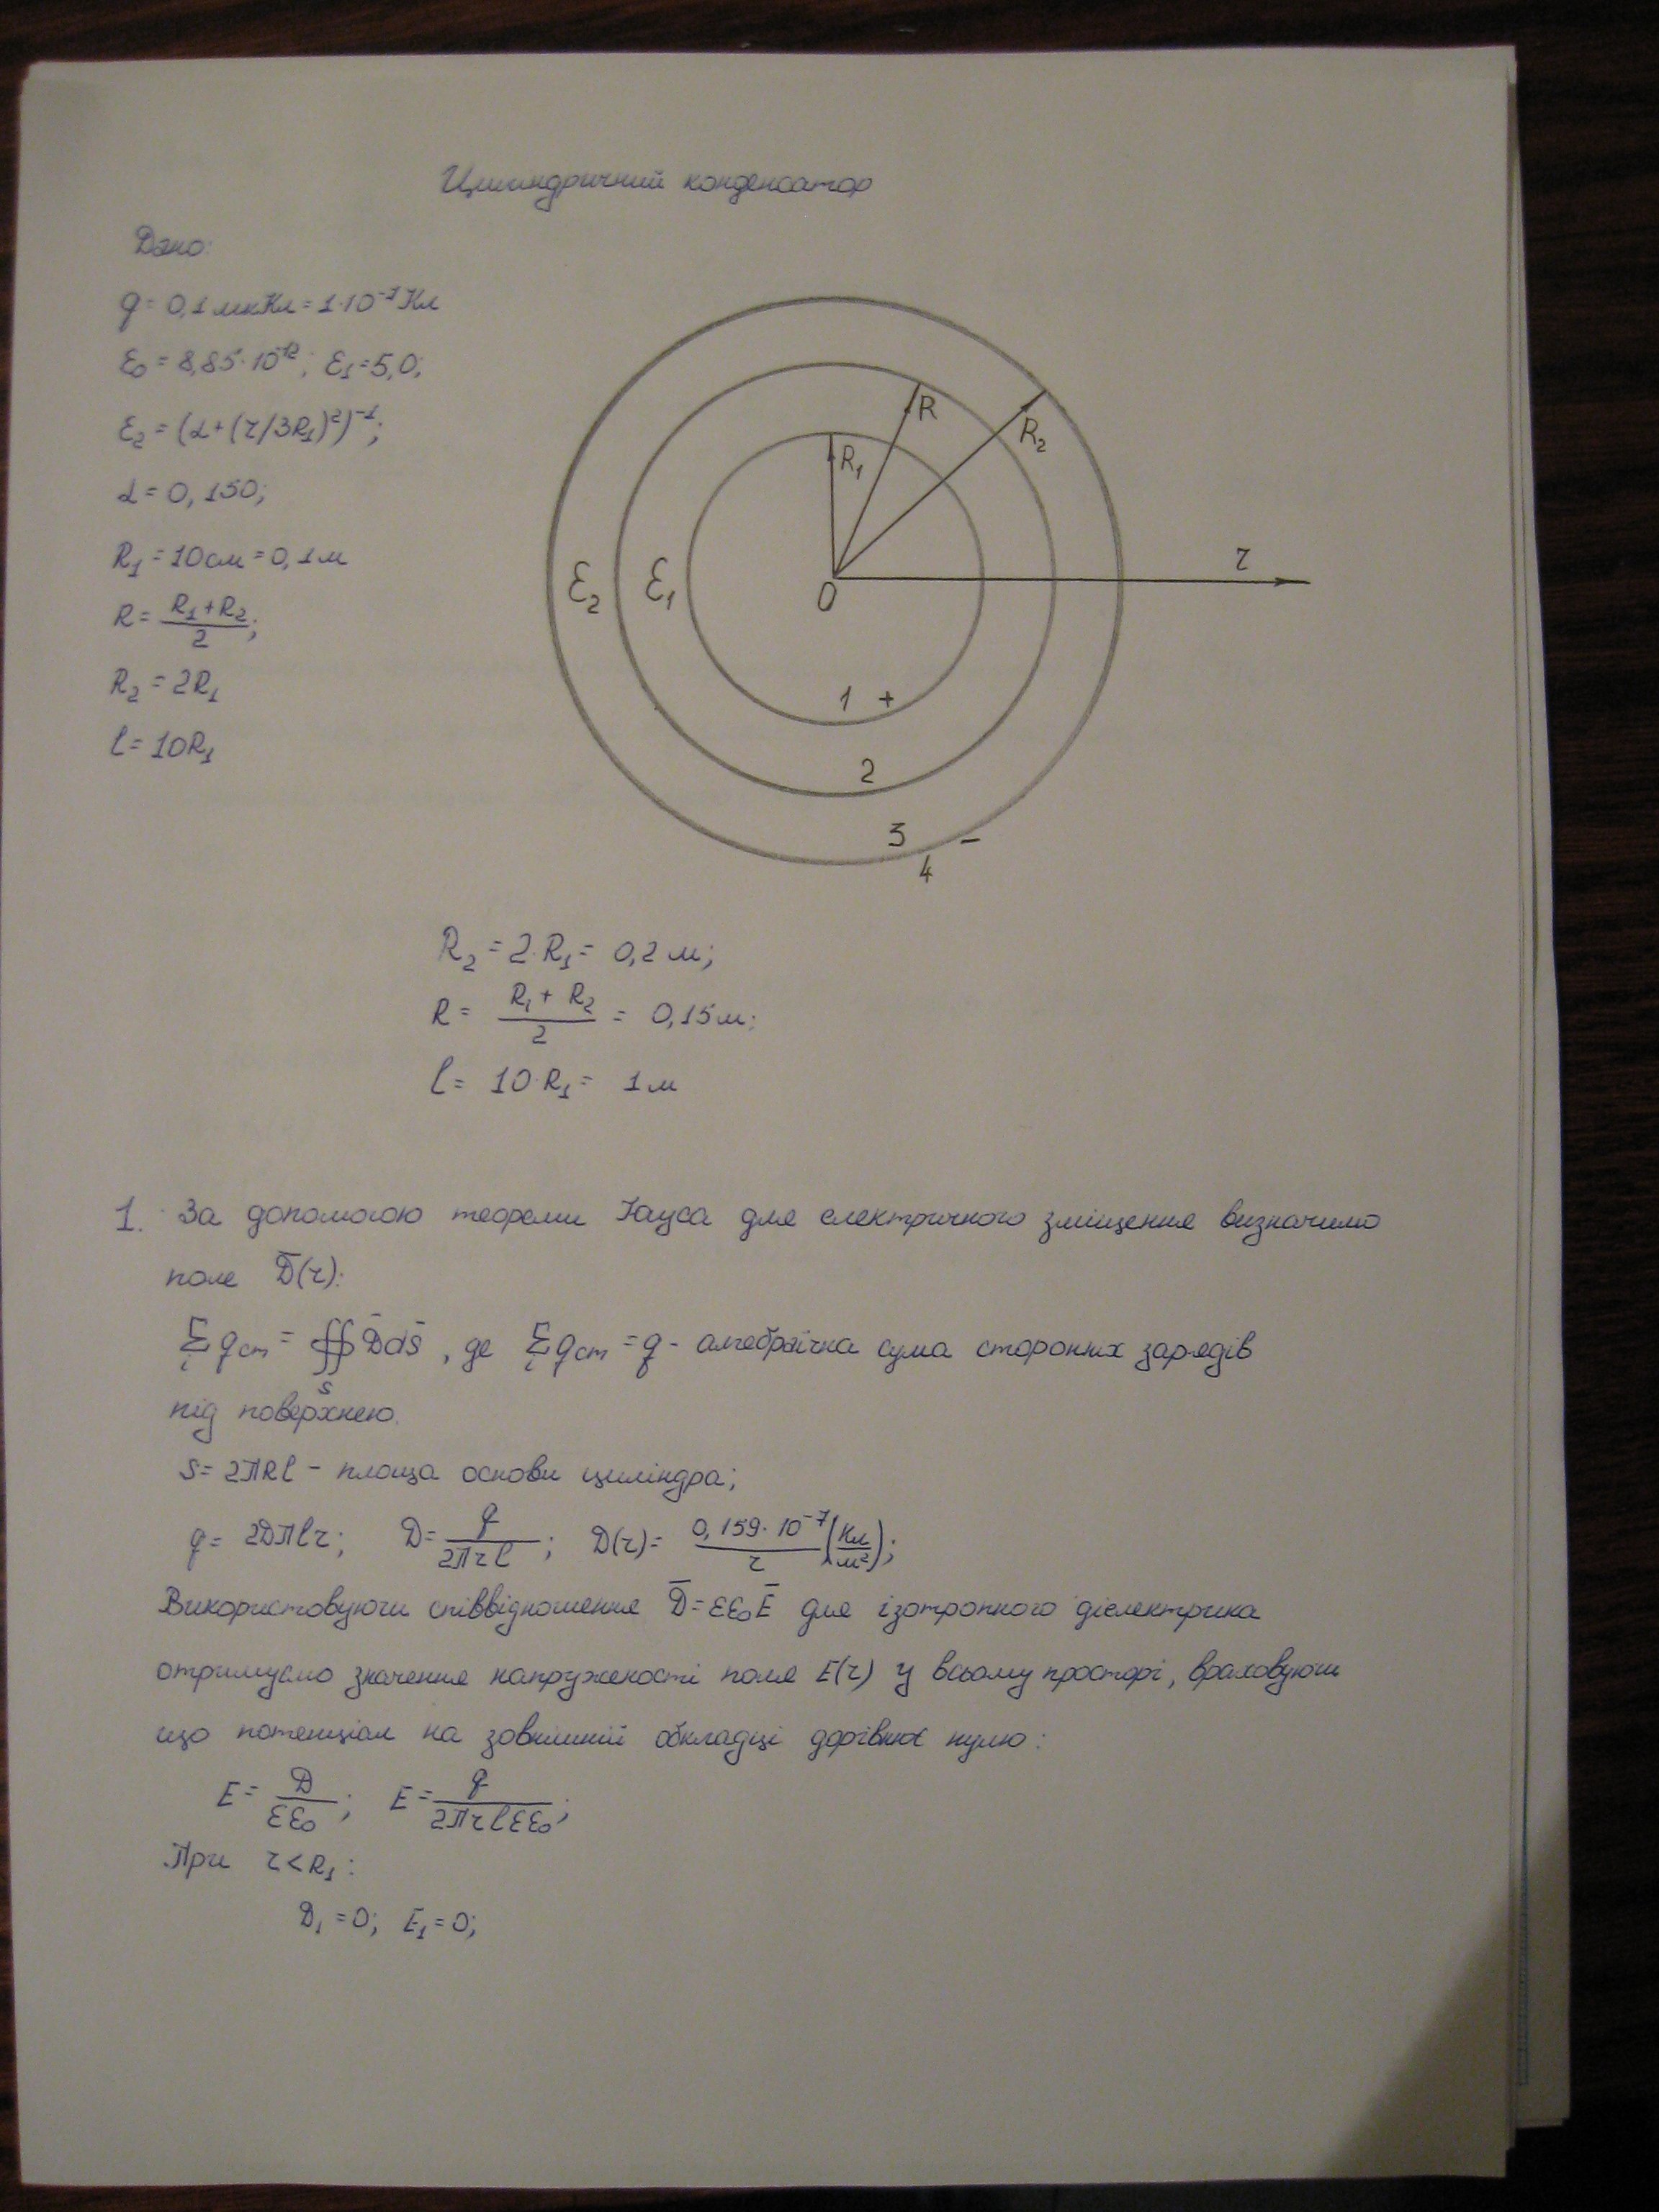 Циліндричний конденсатор
Дано:
q = 0,1 мкКл = 1·10⁻⁷ Кл
ε₀ = 8,85·10⁻¹²; ε₁ = 5,0;
ε₂ = (α + (r/3R₁)²)⁻¹;
α = 0,150;
R₁ = 10 см = 0,1 м
R = (R₁ + R₂)/2;
R₂ = 2R₁
l = 10R₁
R
R₂
R₁
r
ε₂ ε₁ 0
1 +
2
3 −
4
R₂ = 2·R₁ = 0,2 м;
R = (R₁ + R₂)/2 = 0,15 м;
l = 10·R₁ = 1 м
1. За допомогою теореми Гауса для електричного зміщення визначимо
поле D̄(r):
∑ᵢ qст = ∯ₛ D̄ds̄, де ∑ᵢ qст = q - алгебраїчна сума сторонніх зарядів
під поверхнею.
S = 2ПRl - площа основи циліндра;
q = 2DПlr; D = q/(2Пrl); D(r) = (0,159·10⁻⁷)/r (Кл/м²);
Використовуючи співвідношення D̄ = εε₀Ē для ізотропного діелектрика
отримуємо значення напруженості поля E(r) у всьому просторі, враховуючи
що потенціал на зовнішній обкладці дорівнює нулю:
E = D/(εε₀); E = q/(2Пrlεε₀);
При r < R₁:
D₁ = 0; E₁ = 0;